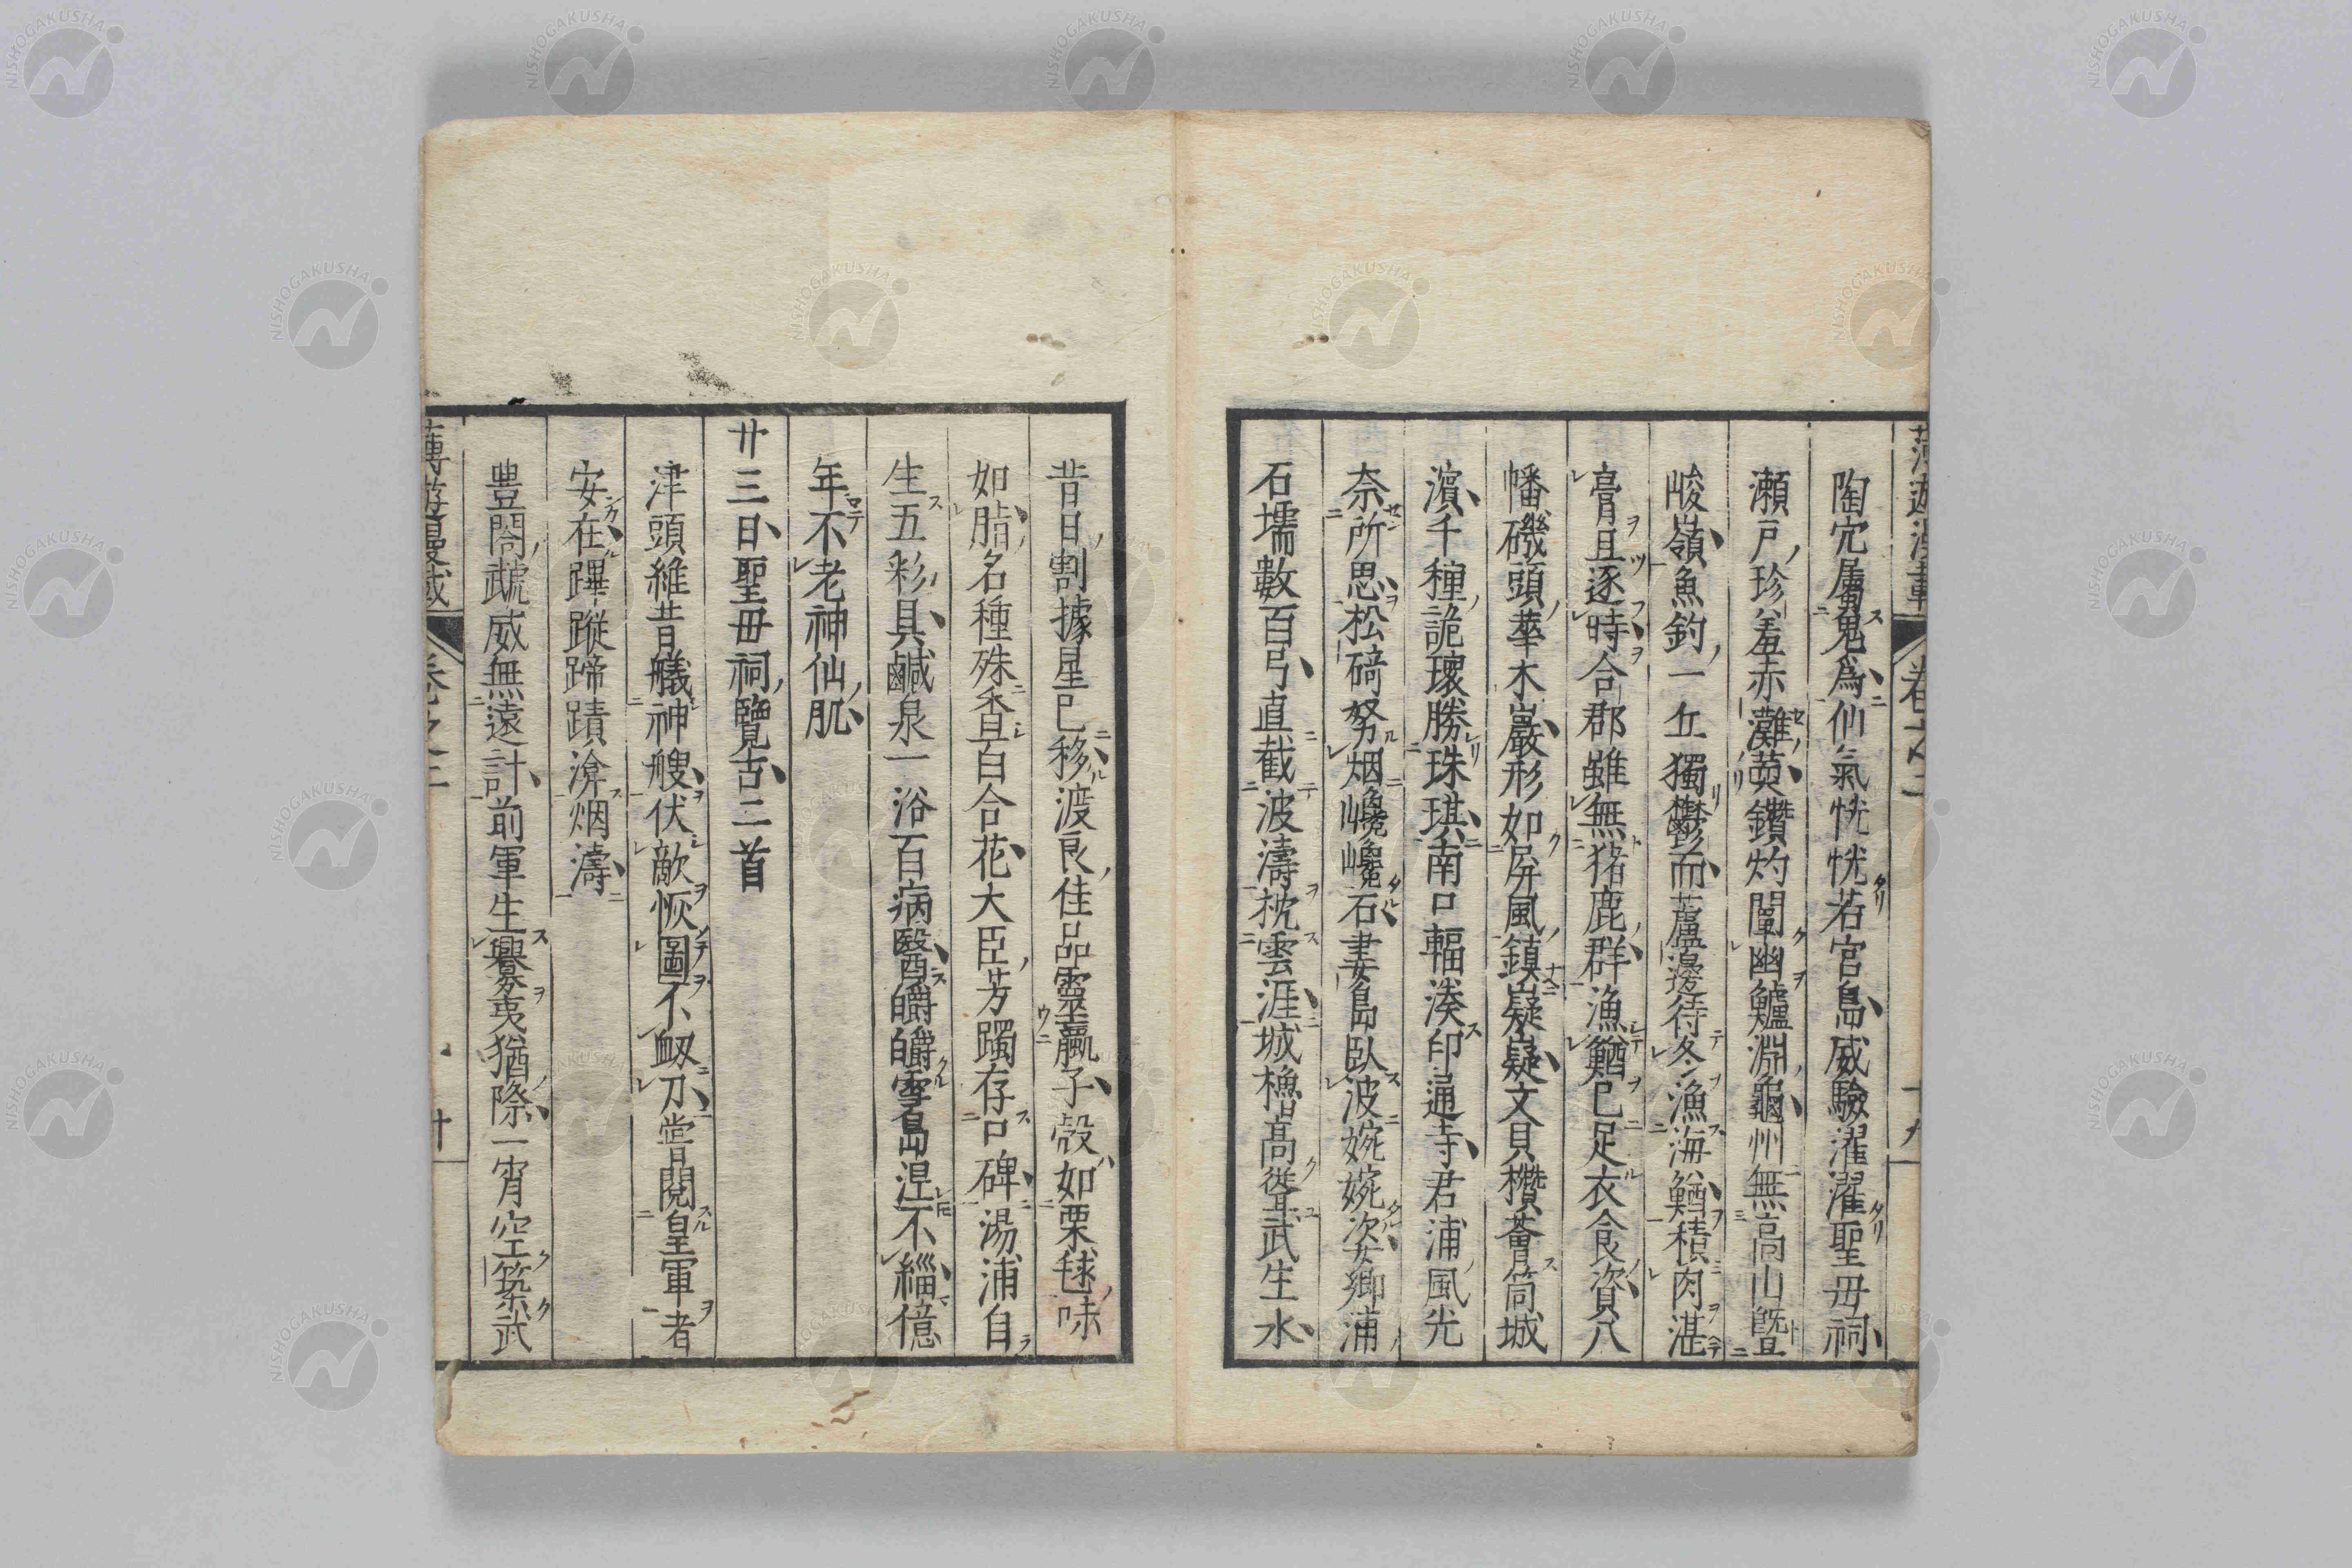 陶穴属鬼爲仙氣恍恍若宮島威驗濯濯聖毋祠
瀬戸珍羞赤灘莄鑽灼闡幽鱸淵龜州無高山曁
峻嶺魚釣一丘獨鬱而蘆邊待冬漁海鰌積肉湛
膏且逐時合郡雖無猪鹿群漁鰌已足衣食資八
幡磯頭華木巖形如屏風鎮嶷嶷文貝櫕薈筒城
濵千種詭瓌勝珠琪南口輻湊印通寺君浦風光
奈所思松碕努烟巉巉石妻島臥波婉婉次女卿浦
石壖數百弓直截波濤枕雲涯城櫓高聳武生水
昔日割據星已移渡良佳品靈蠃子殻如栗毬味
如脂名種殊香百合花大臣芳躅存口碑湯浦自
生五彩具鹹泉一浴百病醫皭皭雪島涅不緇億
年不老神仙肌
廿三日聖毋祠覽古二首
津頭維昔艤神艘伏敵恢圖不衂刀嘗閲皇軍者
安在蹕蹤蹄蹟滄烟濤
豊閤虣威無遠計前軍生釁夷猶際一宵空築武
薄遊漫載 卷之二 十九
薄遊漫載 卷之二 廿